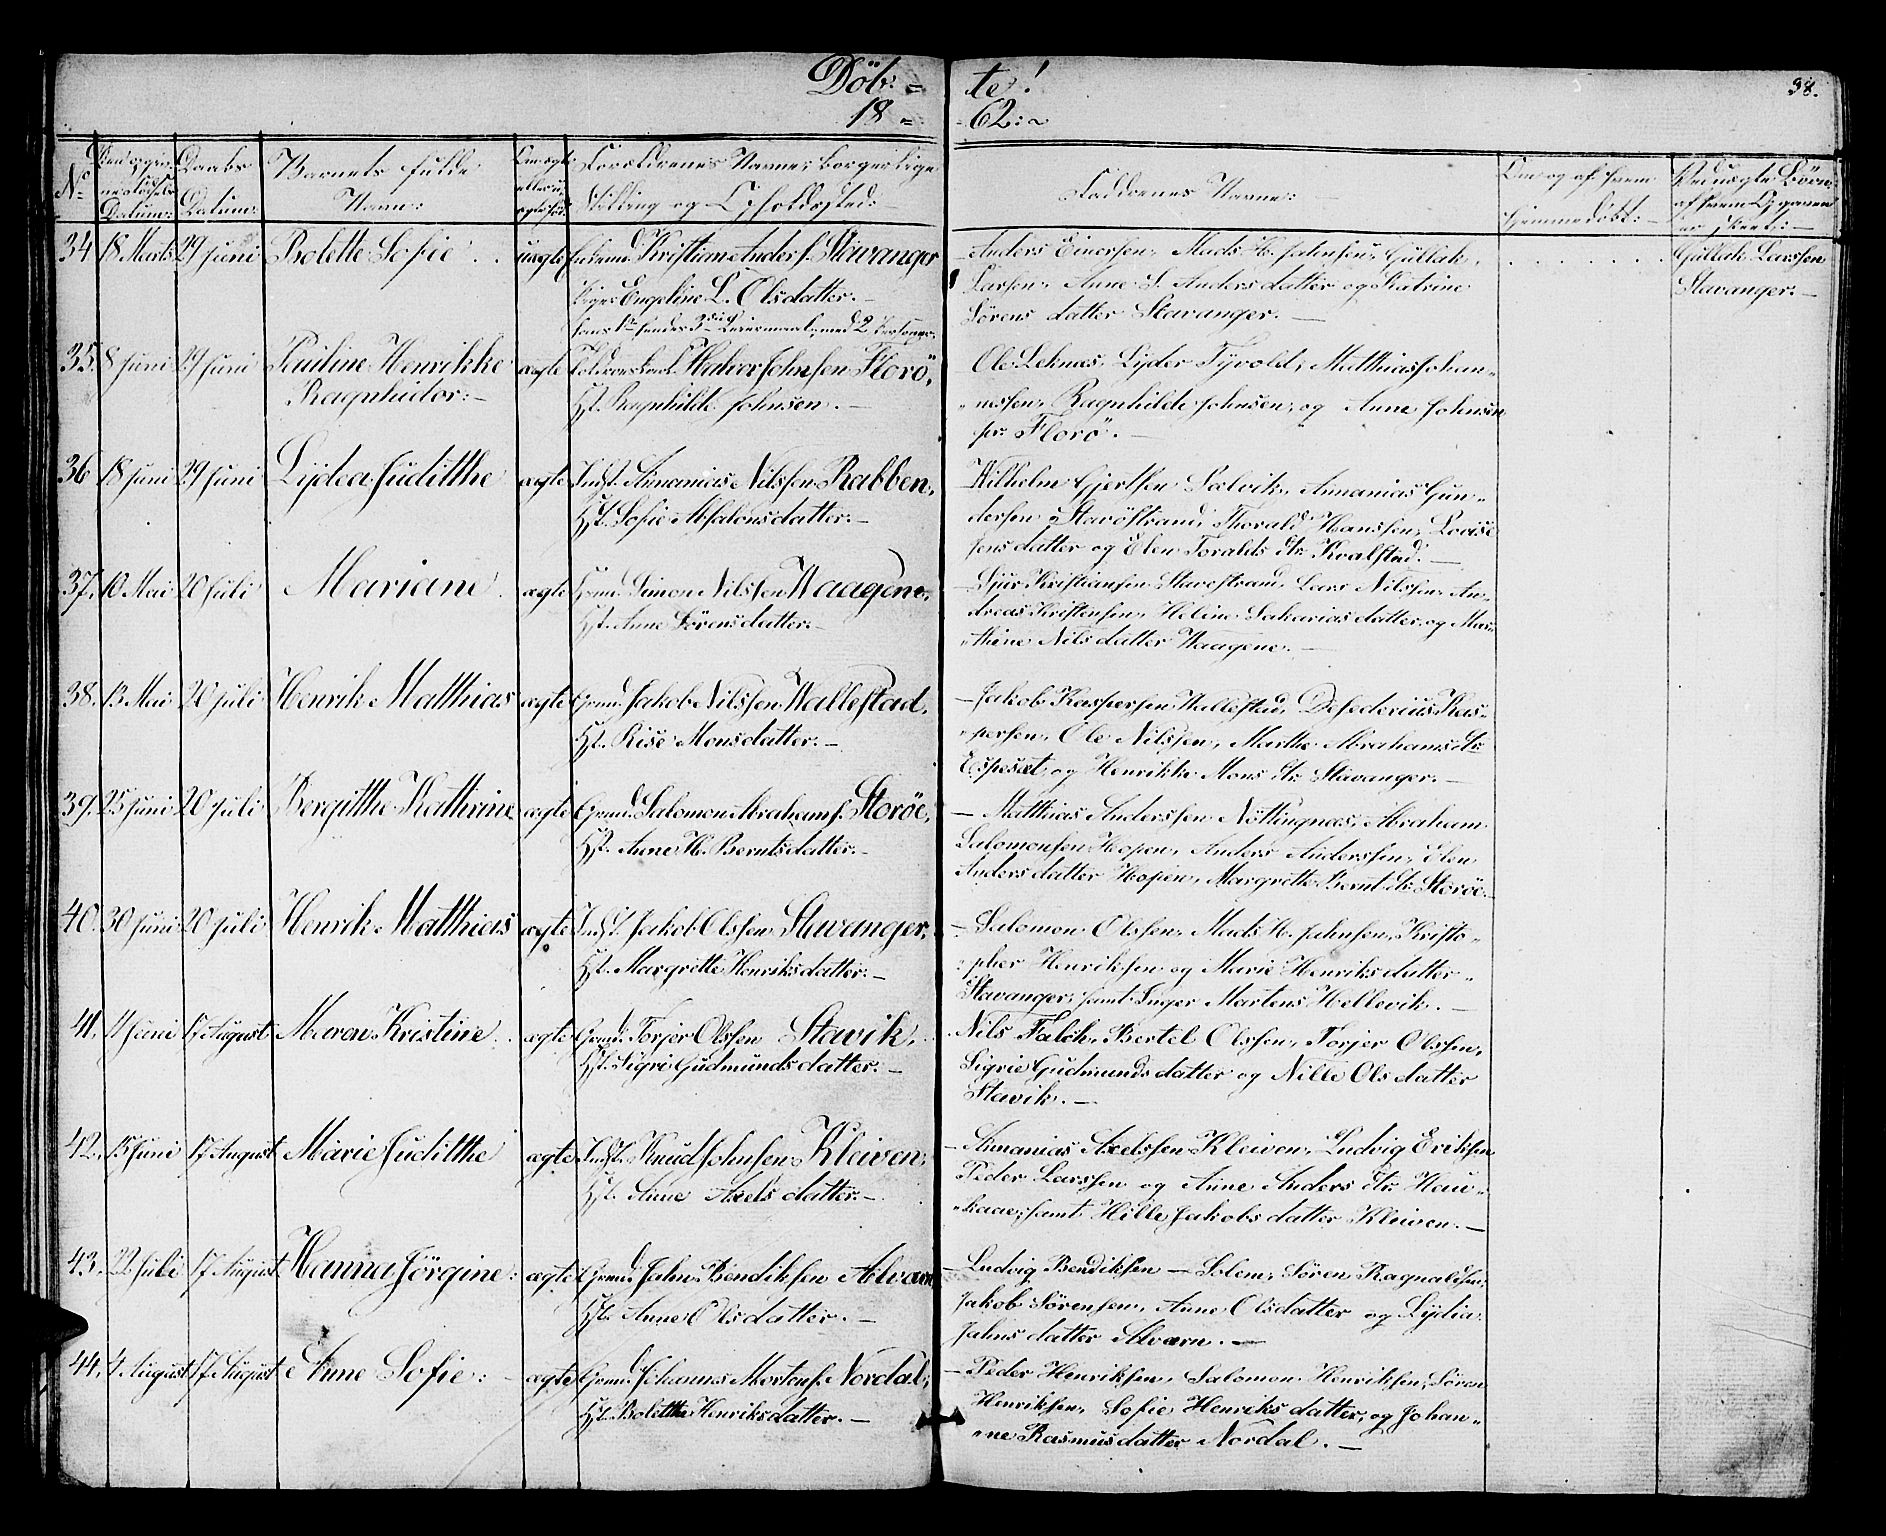 Döb= te!
38.
18= 62:~
No
Datum:
Daabs Datum:
Barnets fulde Navn:
Forældrenes Navne, borgerlige Stilling og Opholdssted:
Faddernes Navne:
Hjemmedöbt:
34 18 Marts 29 juni Bolette Sofie uægte Kristian Anders. Stavanger
Pige Engeline L. Olsdatter.
hans 1te hendes 3die Leiermaal med 2 Personer.
Anders Einersen, Mads H. Jahnsen, Güllak
Larsen, Anne S. Andersdatter og Katrine
Sörens datter Stavanger.
Güllak Larssen
Stavanger.
35. 8 juni 29 juni Pauline Henrikke ægte Halvor Johnsen Florö,
Ragnhilda: Hst. Ragnhilde Johnsen.
Ole Leknæs, Lyder Tyvold, Matthias Johan-
nessen, Ragnhilde Johnsen, og Anne Johnsen
pr. Florö.
36 18 juni 29 juni Lydea Juditthe ægte Indst. Annanias Nilssen Rabben,
Hst. Sofie Absalonsdatter.
Wilhelm Gjertsen Sælvik, Annanias Gun-
dersen Stavöstrand, Thorald Hanssen, Lovise
Jensdatter og Elen Toralds dtr. Kvalstad.
37. 10 Mai 20 juli Mariane ægte Grmd. Simon Nilssen Waagene,
Hst. Anne Sörensdatter.
Sjur Kristiansen Stavestrand, Lars Nilssen, An-
dreas Kristensen, Heline Sakariasdatter og Mar-
thine Nilsdatter Waagene.
38. 13 Mai 20 juli Henrik Matthias ægte Grmd. Jakob Nilssen Wallestad,
Hst. Lise Monsdatter.
Jakob Kaspersen Wallestad, Desederius Kas-
persen, Ole Nilssen, Marthe Abrahams dtr.
Espeset, og Henrikke Mons dtr. Stavanger.
39. 25 juni 20 juli Bergitthe Kathrine ægte Grmd. Salomon Abrahams. Storöe,
Hst. Anne H. Berntsdatter.
Matthias Anderssen Nöttingnæs, Abraham
Salomonsen Hopen, Anders Anderssen, Elen
Andersdatter Hopen, Margrethe Bernt dtr. Storöe.
40. 30 juni 20 juli Henrik Matthias ægte Indst. Jakob Olssen Stavanger,
Hst. Margrette Henriksdatter.
Salomon Olssen, Mads H. Jahnsen, Kristo-
pher Henriksen og Marie Henriksdatter
Stavanger, samt Inger Martens Hellevik.
41. 11 juni 17 August Maren Kristine ægte Grmd. Torjer Olssen Stavik,
Hst. Sigri Gudmundsdatter.
Nils Falch, Bertel Olssen, Torjer Olssen,
Sigrie Gudmundsdatter og Nille Olsdatter
Stavik.
42. 15 juni 17 August Marie Juditthe ægte Indst. Knud Johnsen Kleiven,
Hst. Anne Axelsdatter.
Annanias Axelssen Kleiven, Ludvig Eriksen,
Peder Larssen og Anne Anders dtr. Hau-
kaae, samt Hille Jakobsdatter Kleiven.
43. 22 juli 17 August Hanna Jörgine: ægte Grmd. Jahn Bendiksen Alværn
Hst. Anne Olsdatter.
Ludvig Bendiksen Solem, Sören Ragnaldsen,
Jakob Sörensen, Anne Olsdatter og Lydia
Jahnsdatter Alværn.
44. 4 August 17 August Anne Sofie: ægte Grmd. Johannes Mortens. Nordal,
Hst. Bolette Henriksdatter.
Peder Henriksen, Salomon Henriksen, Sören
Henriksen, Sofie Henriksdatter, og Johan-
ne Rasmusdatter Nordal.